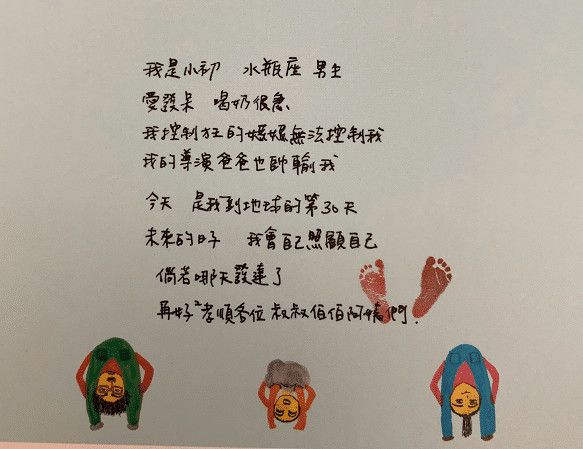 我是小初 水瓶座 男生
愛發呆 喝奶很急
我控制狂的媽媽無法控制我
我的導演爸爸也帥輸我
今天 是我到地球的第30天
未來的日子 我會自己照顧自己
倘若哪天發達了
再好好孝順各位叔叔伯伯阿姨們.